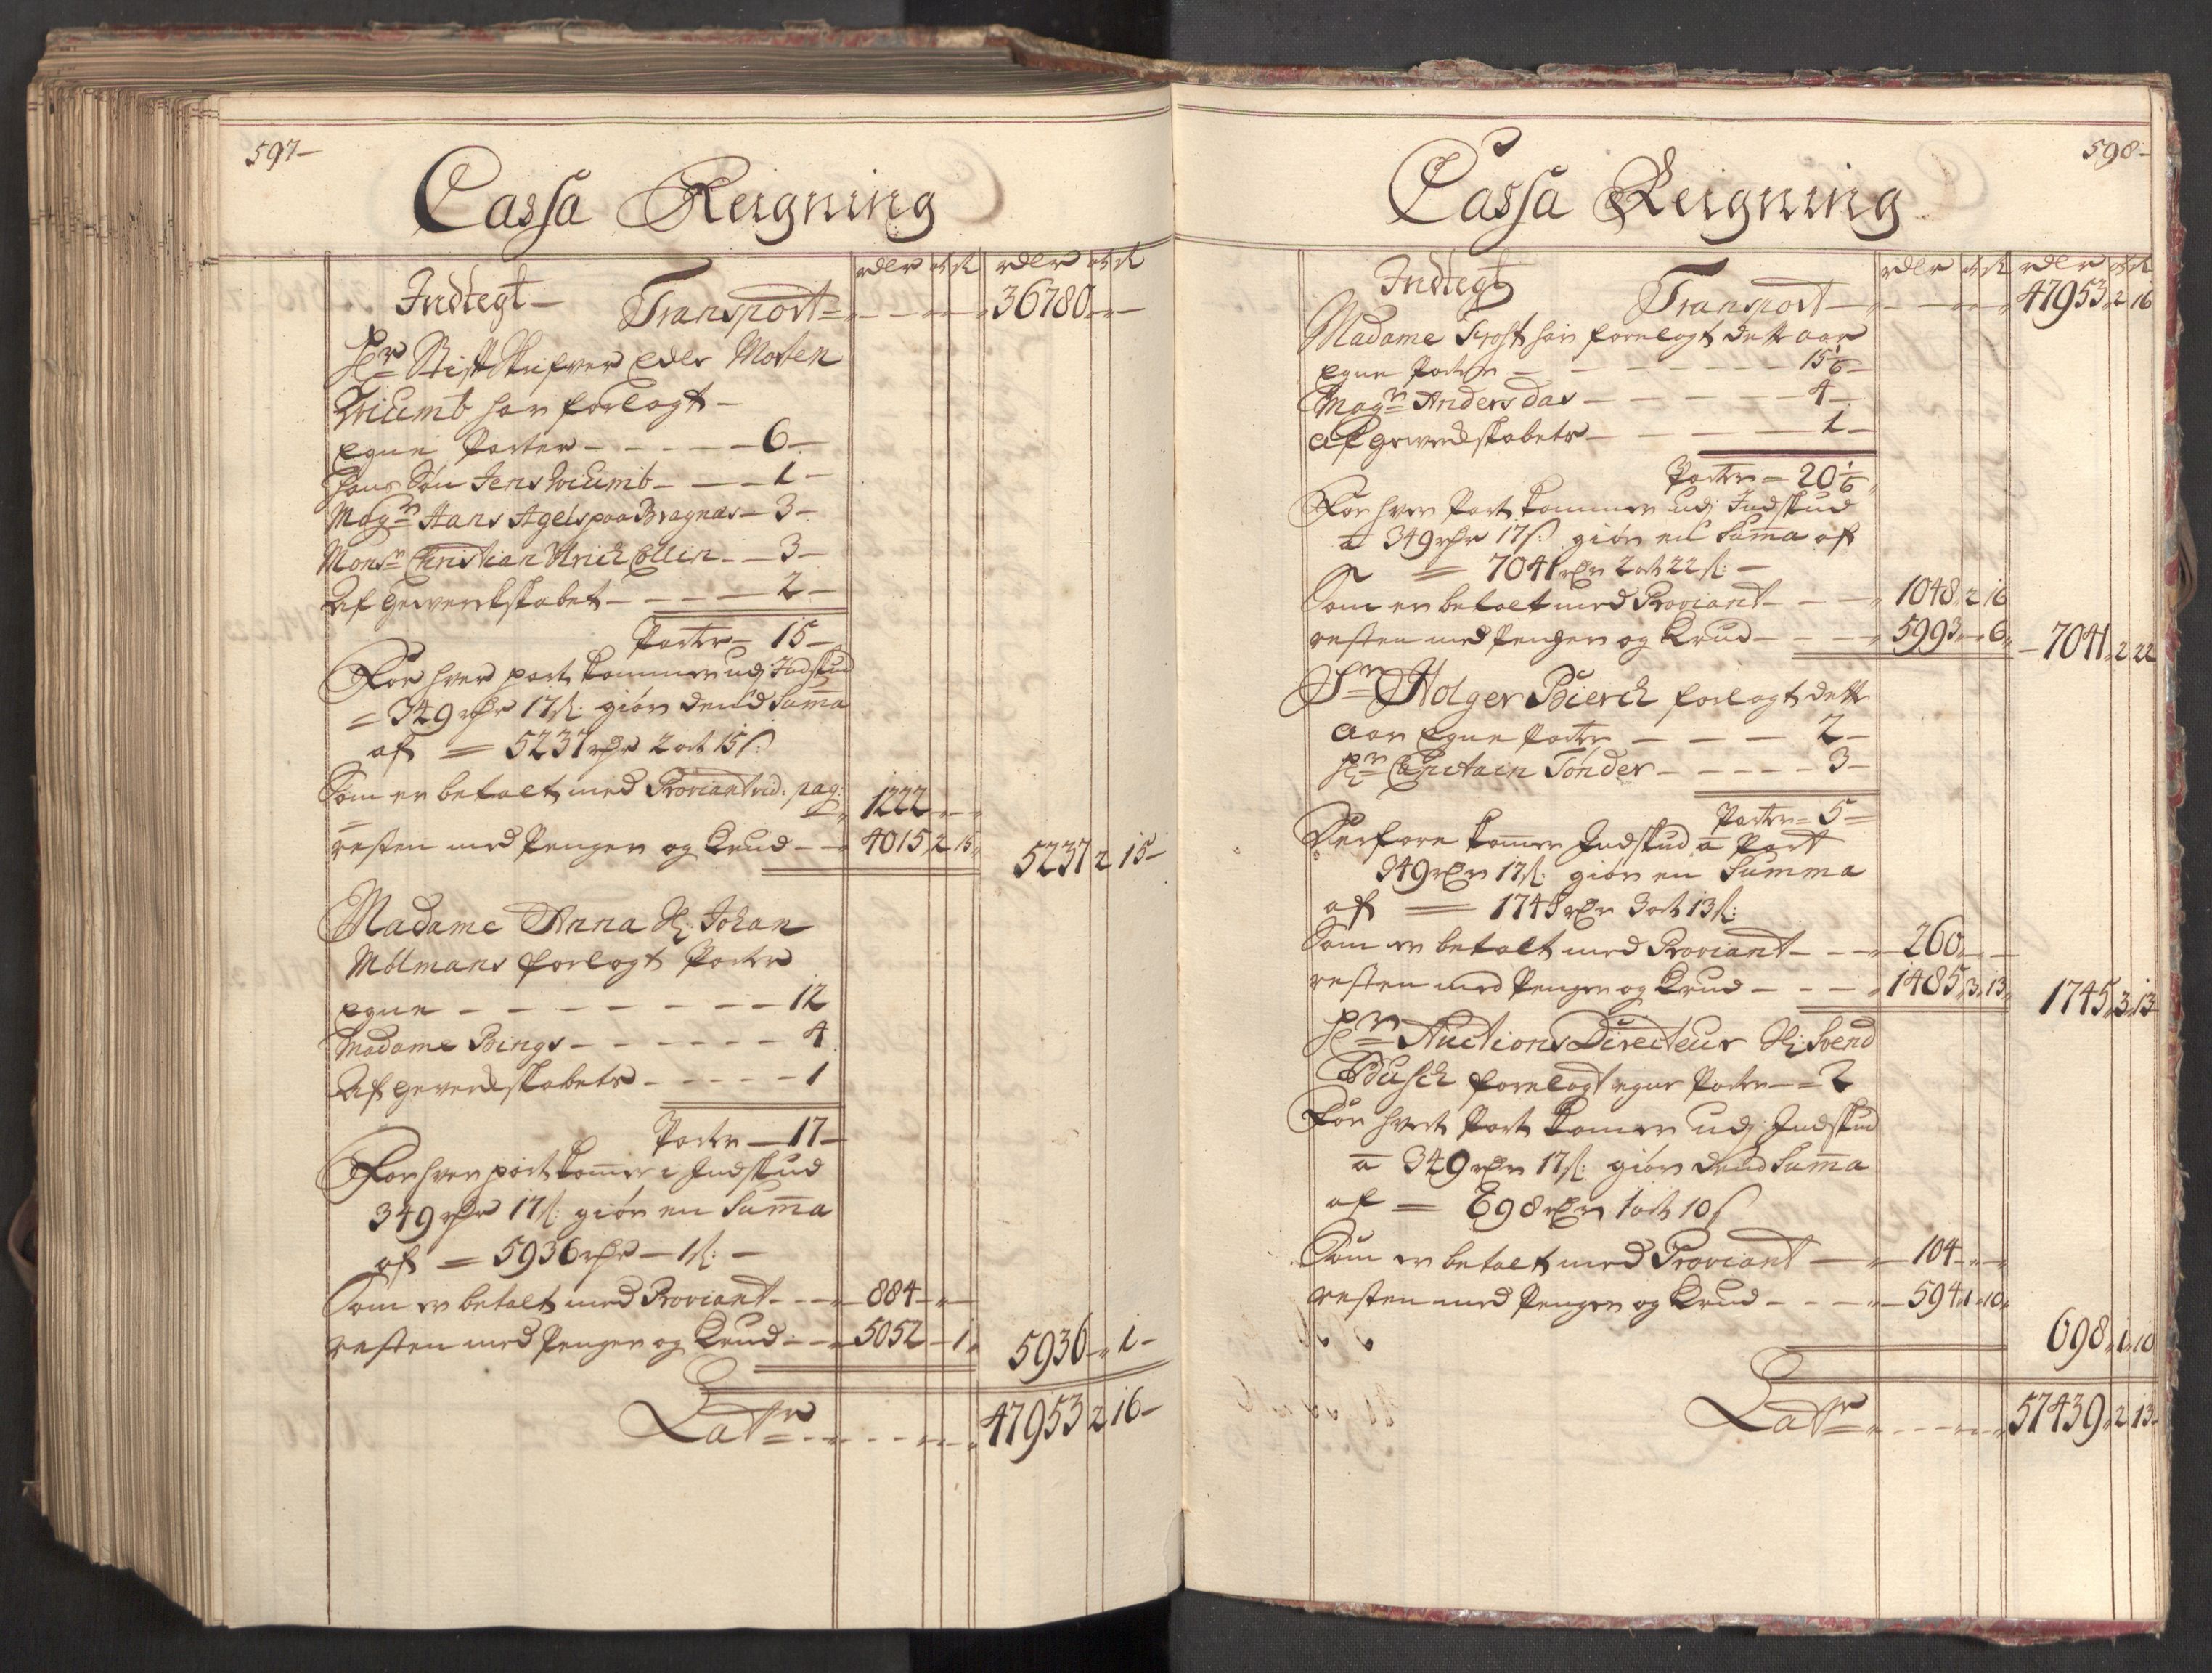 597-
Cassa Reigning
rdlr ort sk rdlr ort sk
Indtegt- Transport 36780
Hr Stiftskrifver Peder Morten
Wiumb har forlagt-
Egne Parter - - - - - 6-
hans Søn Jens Wiumb - - - 1-
Magr Hans Agels paa Bragnæs - 3-
Monsr Christian Ulrich Collin - - 3-
Af Gewerkskabet - - - - 2-
Parter - 15-
For hver part kommer udj Indskud
= 349 rdr 17 sk: giør dend Suma
af = 5237 rdr 2 ort 15 s:
Som er betalt med Proviant vid: pag: 1222
resten med Penger og Krud - - 4015 2 15 5237 2 15-
Madame Anna Sl: Johan
Mølmans forlagt Parter
Egne - - - - - - - 12
Madame Bings - - - - - - 4
Af Gewerckskabets - - - - - 1
Parter - 17-
For hver part komer i Indskud
349 rdr 17 sk: giør en Suma
af = 5936 rdr - 1 sk: -
Som er betalt med Proviant - - - 884
resten med Penger og Krud - - 5052 - 1 5936 - 1-
Latr 47953 2 16-
598-
Cassa Reigning
rdlr ort sk rdlr ort sk
Indtegt Transport 47953 2 16
Madame Frost har forelagt dette aar
Egne Parter - - - - - - - 15 1/6 -
Magr Anders das - - - - - 4-
af gewerckskabets - - - - 1-
Parter = 20 1/6
For hver Part kommer udj Indskud
a 349 rdr 17 s: giør en Suma af
= 7041 rdr 2 ort 22 sk: -
Som er betalt med Proviant - - - 1048 2 16
resten med Penger og Krud - - - 5993 - 6 7041 2 22
Sr Holger Bierch forlagt dette
aar Egne Parter - - - - 2-
Hr Capitain Tønder - - - - - 3-
Parter = 5-
Derfore komer Indskud a Part
349 rdr 17 sk: giør en Summa
af = 1745 rdr 3 ort 13 sk:
Som er betalt med Proviant - - - 260
resten med Penger og Krud - - - 1485 3 13 1745 3 13
Hr Auctions Directeur Sl: Svend
Busch forelagt egne Parter - = 2
For hvert Part komer udj Indskud
a 349 rdr 17 sk: giør dend Suma
af = 698 rdr 1 ort 10 s
Som er betalt med Proviant - 104
resten med Penger og Krud - - - 594 1 10
698 1 10
Latr 57439 2 13